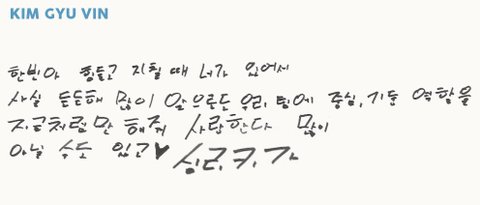 KIM GYU VIN
한빈아 힘들고 지칠 때 너가 있어서
사실 든든해 많이 앞으로도 우리 팀에 중심, 기둥 역할을
지금처럼만 해줘 사랑한다 많이
아닐 수도 있고♥